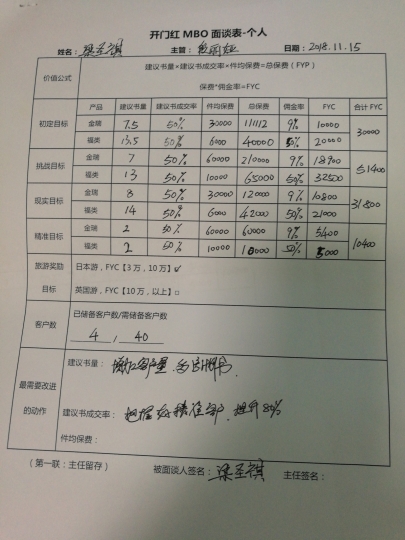 开门红 MBO 面谈表-个人
姓名: 梁圣祺 主管: 日期: 2018.11.15
价值公式 建议书量×建议书成交率×件均保费=总保费（FYP）
保费*佣金率=FYC
产品 建议书量 建议书成交率 件均保费 总保费 佣金率 FYC 合计 FYC
初定目标 金瑞 7.5 50% 30000 111112 9% 10000 30000
福类 13.5 50% 6000 40000 50% 20000
挑战目标 金瑞 7 50% 60000 210000 9% 18900 51400
福类 13 50% 10000 65000 50% 32500
现实目标 金瑞 8 50% 30000 120000 9% 10800 31800
福类 14 50% 6000 42000 50% 21000
精准目标 金瑞 2 50% 60000 60000 9% 5400 10400
福类 2 50% 10000 10000 50% 5000
旅游奖励 日本游，FYC【3 万，10 万】√
目标 英国游，FYC【10 万，以上】□
客户数 已储备客户数/需储备客户数
4 , 40
最需要改进的动作 建议书量: 增加客户量,
建议书成交率: 把握好精准客户, 提升80%
件均保费:
（第一联：主任留存） 被面谈人签名: 梁圣祺 主任签名: